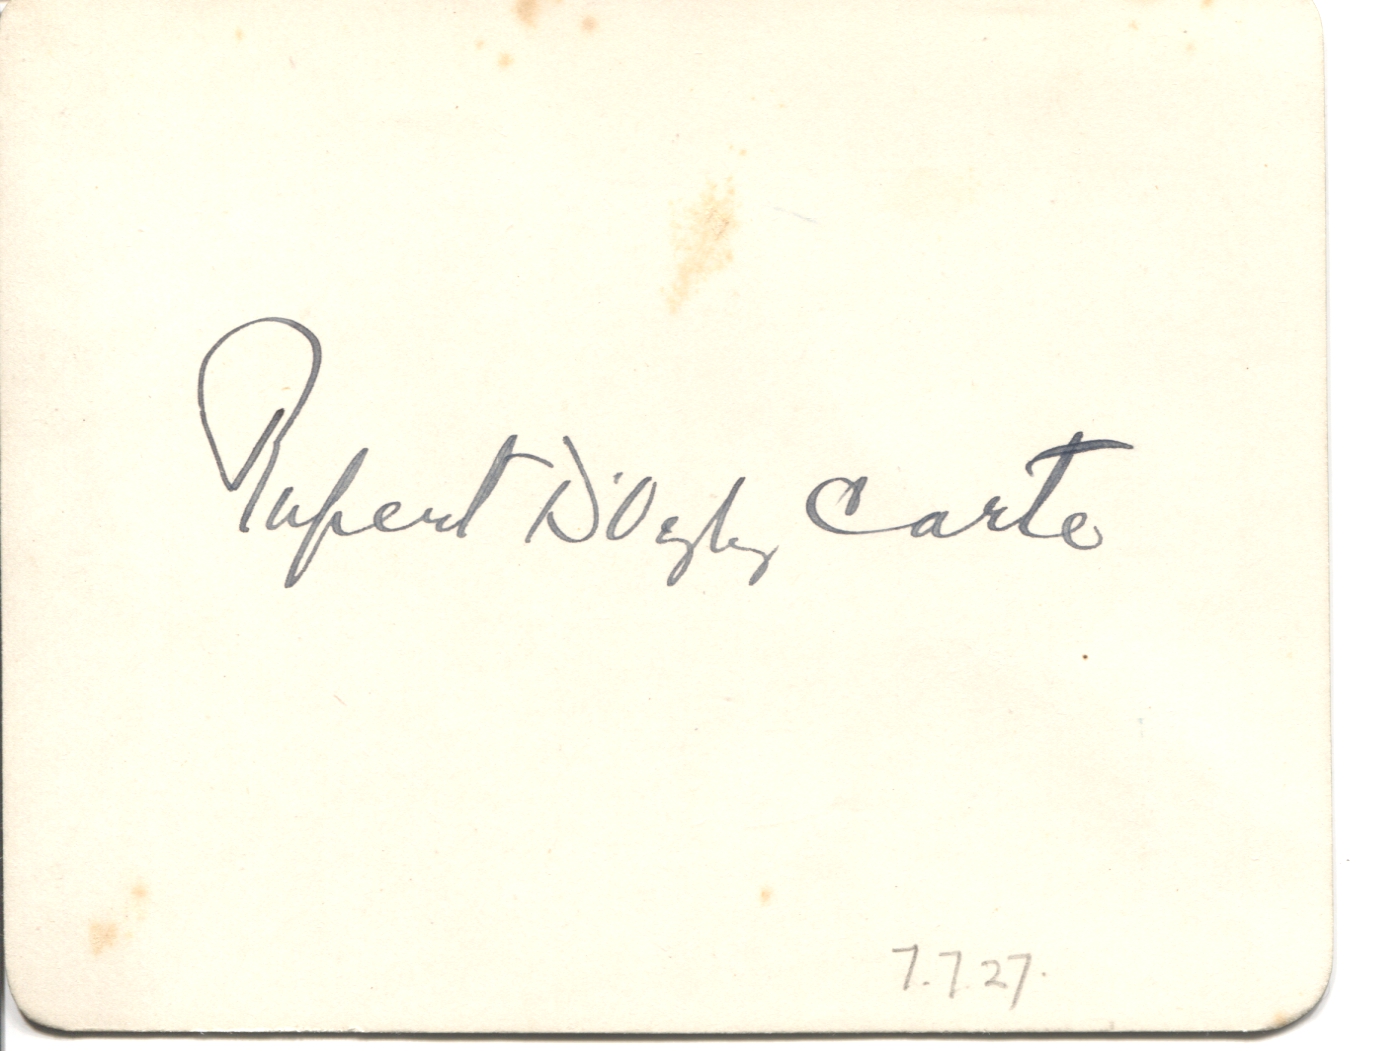 Rupert D'Oyly Carte
7.7.27.